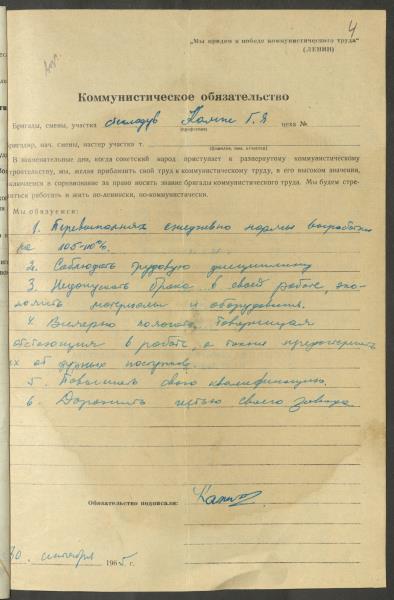 4
„Мы придем к победе коммунистического труда"
(ЛЕНИН)
Коммунистическое обязательство
Бригады, смены, участка Г. Я цеха №
(профессия)
бригадир, нач. смены, мастер участка т.
(фамилия, имя, отчество)
В знаменательные дни, когда советский народ приступает к развернутому коммунистическому
строительству, мы, желая приблизить свой труд к коммунистическому труду, в его высоком значении,
включаемся в соревнование за право носить звание бригады коммунистического труда. Мы будем стре-
миться работать и жить по-ленински, по-коммунистически.
Мы обязуемся:
1. Перевыполнять ежедневно нормы выработки
на 105-110%.
2. Соблюдать трудовую дисциплину
3. Недопускать брака в своей работе, эко-
номить материалы и оборудования.
4. помогать товарищам
в работе, а также
их от дурных поступков.
5. Повышать свою квалификацию.
6. Дорожить честью своего завода
Обязательство подписали:
сентября 196 г.